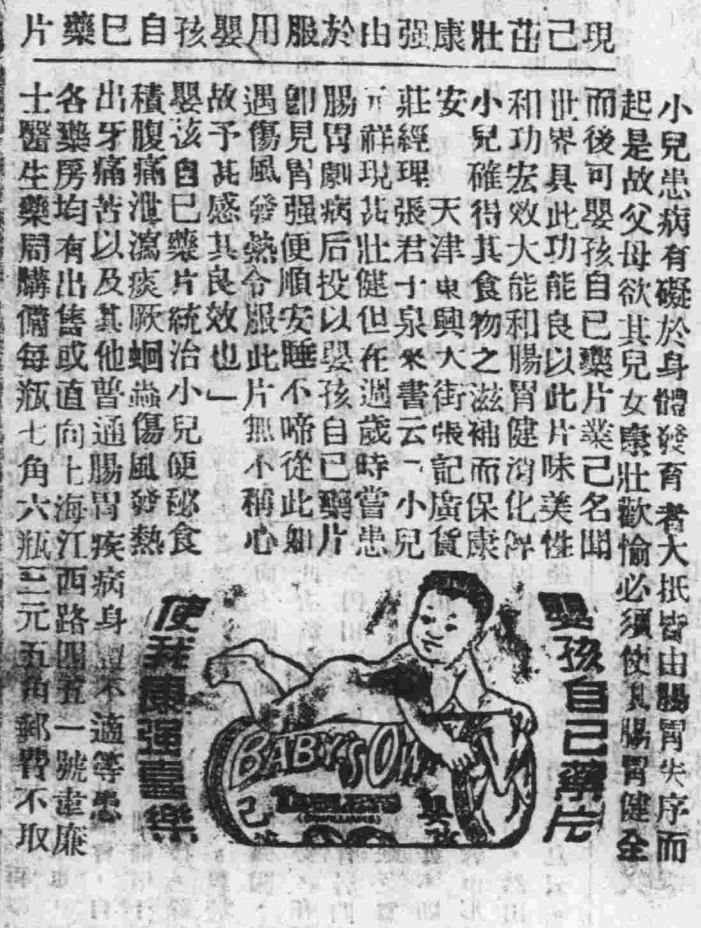 現己茁壯康强由於服用嬰孩自已藥片
小兒患病有礙於身體發育者大抵皆由腸胃失序而
起是故父母欲其兒女康壯歡愉必須使其腸胃健全
而後可嬰孩自已藥片業己名聞
世界具此功能良以此片味美性
和功宏效大能和腸胃健消化俾
小兒確得其食物之滋補而保康
安 天津東興大街張記廣貨
莊經理張君十泉來書云「小兒
元祥現甚壯健但在週歲時嘗患
腸胃劇病后投以嬰孩自已藥片
卽見胃强便順安睡不啼從此如
遇傷風發熱令服此片無不稱心
故予甚感其良效也」
嬰孩自已藥片統治小兒便秘食
積腹痛泄瀉痰厥蛔蟲傷風發熱
出牙痛苦以及其他普通腸胃疾病身體不適等患
各藥房均有出售或直向上海江西路四五一號韋廉
士醫生藥局購備每瓶七角六瓶三元五角郵費不取
嬰孩自己藥片
使我康强喜樂
BABY'S OWN
TABLETS